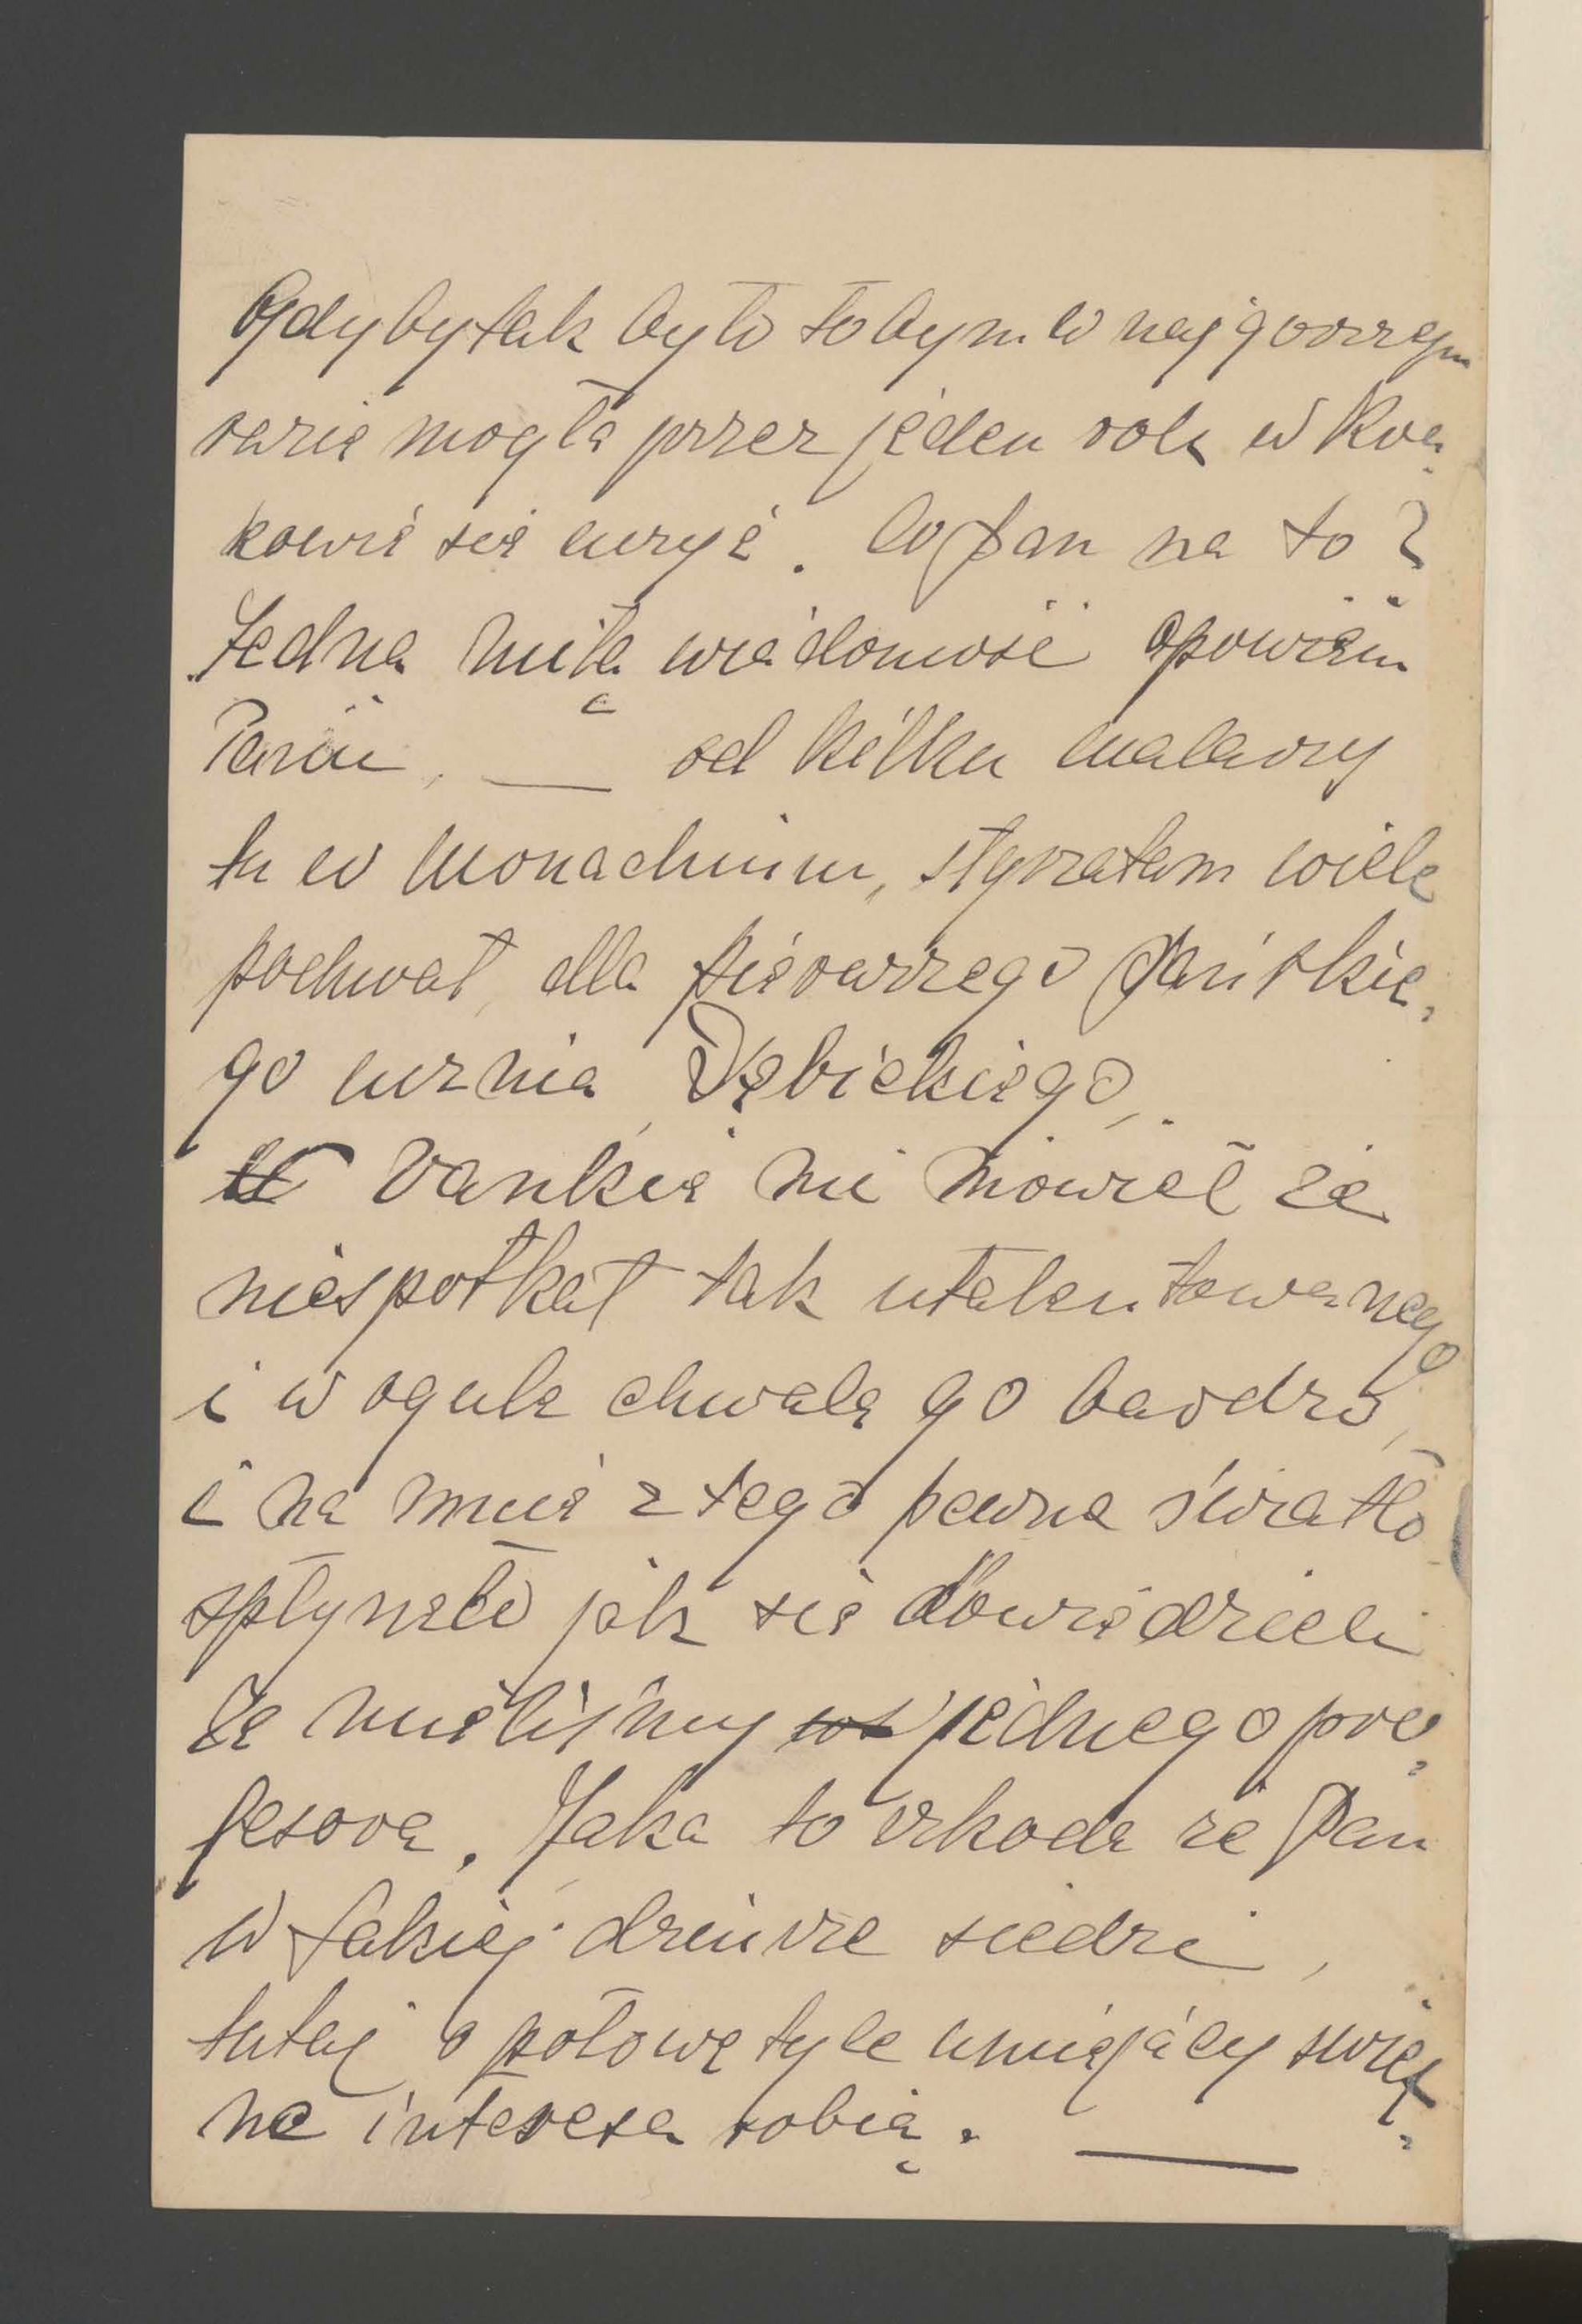 Gdyby tak było to bym w najgorszym
razie mogła przez jeden rok w Kra-
kowie się uczyć. Co Pan na to?
Jedną miłą wiadomość opowiem
Panu, — od kilku malarzy
tu w Monachium, słyszałam wiele
pochwał, dla pierwszego Pańskie-
go ucznia, Dębickiego,
Vankie mi mówił że
niespotkał tak utalentowanego
i w ogule chwalą go bardzo,
i na mnie z tego pewne światło
spłynęło jak się dowiedzieli
że mieliśmy jednego pro-
fesora. Jaka to szkoda że Pan
w takiej dziurze siedzi,
tutaj o połowę tyle umiejący świet-
ne interesa robią. —